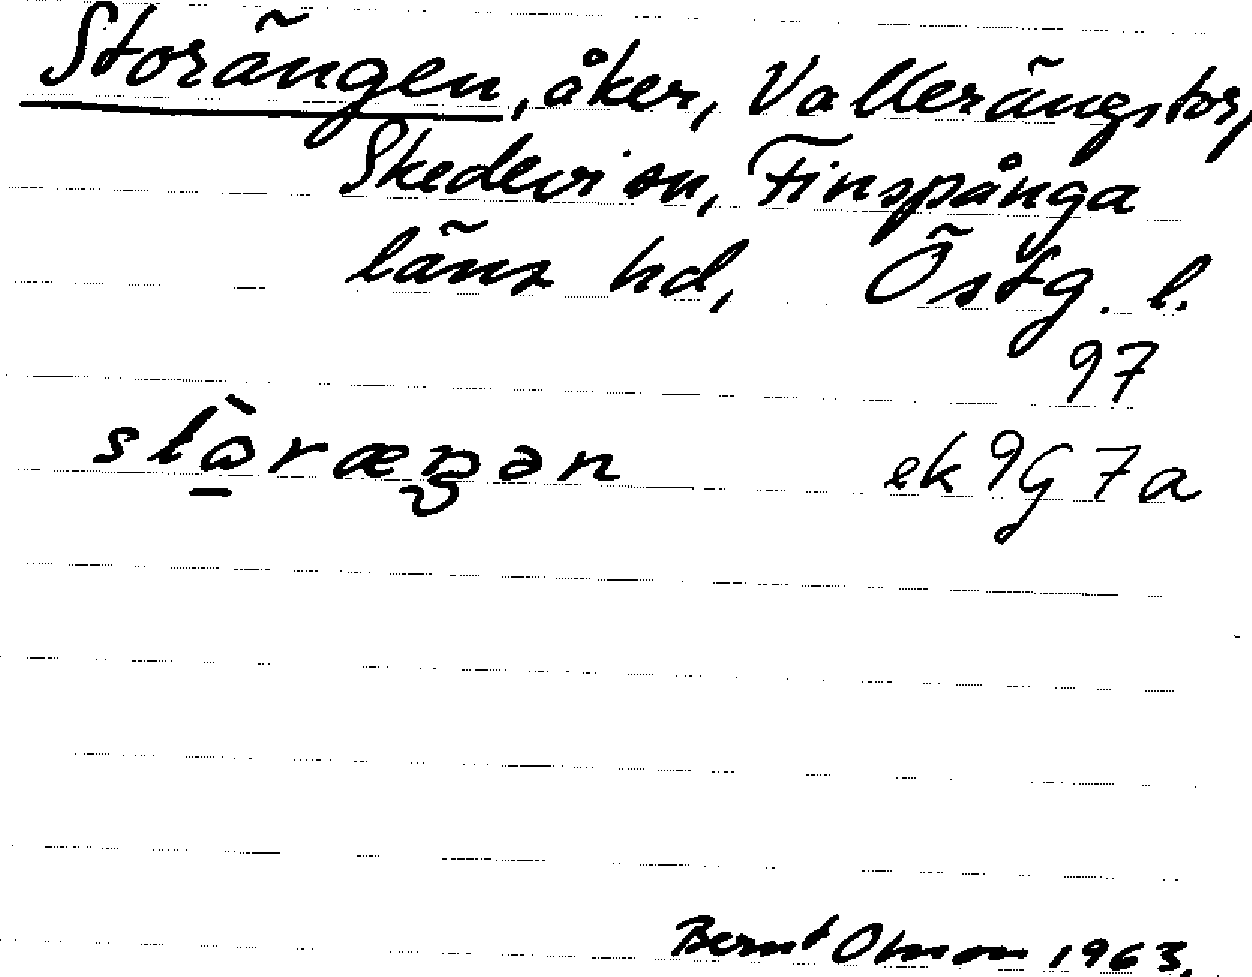 Storängen, åker, Vallerängstorp,
Skedevi sn, Finspånga
läns hd, Östg. l.
97
stò̠ræŋən ek 9G7a
Bernt Olsson 1963.